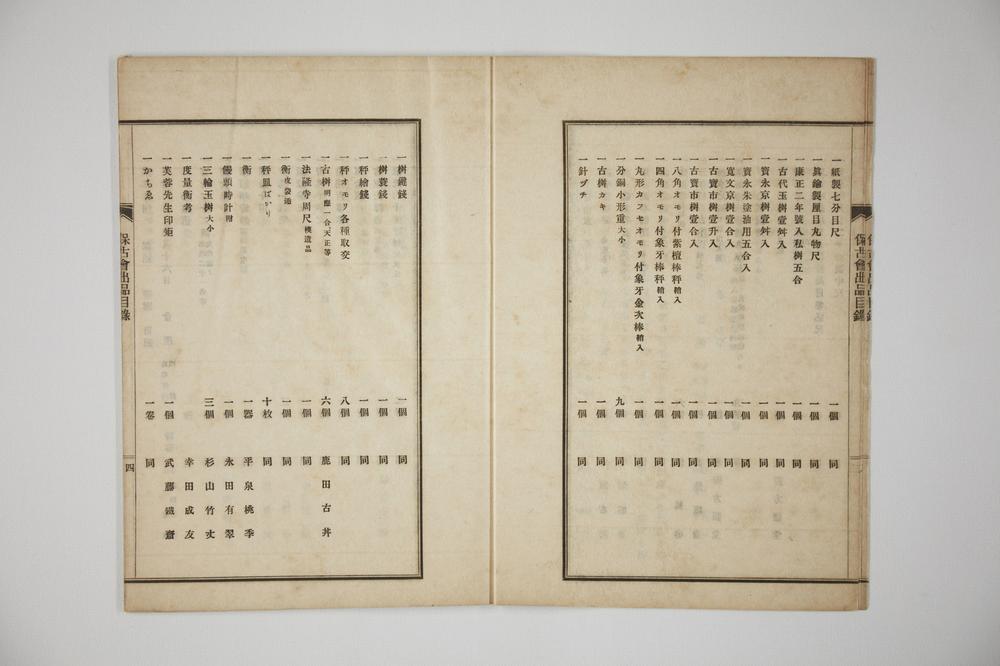 一紙製七分目尺 一個 同
一眞鍮製厘目丸物尺 一個 同
一康正二年號入私樹五合 一個 同
一古代玉樹壹舛入 一個 同
一寶永京樹壹舛入 一個 同
一寶永朱塗油用五合入 一個 同
一寬文京樹壹合入 一個 同
一古賣市樹壹升入 一個 同
一古賣市樹壹合入 一個 同
一八角オモリ付紫檀棒秤箱入 一個 同
一四角オモリ付象牙棒秤箱入 一個 同
一丸形カブセオモリ付象牙金次棒箱入 一個 同
一分銅小形重大小 九個 同
一古樹カキ 一個 同
一針ヅチ 一個 同
保古會出品目錄
一樹鐵錢 一個 同
一樹蓑錢 一個 同
一秤繪錢 一個 同
一秤オモリ各種取交 八個 同
一古樹明應一合天正等 六個 鹿田古丼
一法隆寺周尺模造品 一個 同
一衡皮袋通 一個 同
一秤皿ばかり 十枚 同
一衡 一器 平泉桃季
一饅頭時計附 一個 永田有翠
一三輪玉樹大小 三個 杉山竹丈
一度量衡考 幸田成友
一芙蓉先生印矩 一個 武藤鐵齋
一かちゑ 一卷 同
保古會出品目錄
四